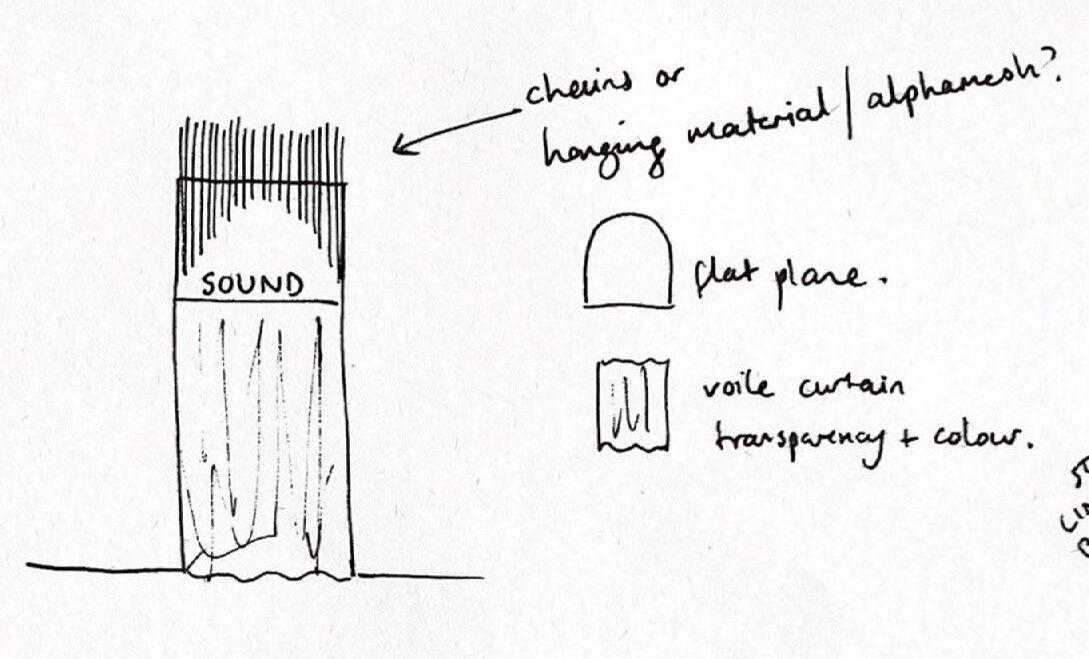 chains or
hanging material / alphamesh?
SOUND
flat plane.
voile curtain
transparency + colour.